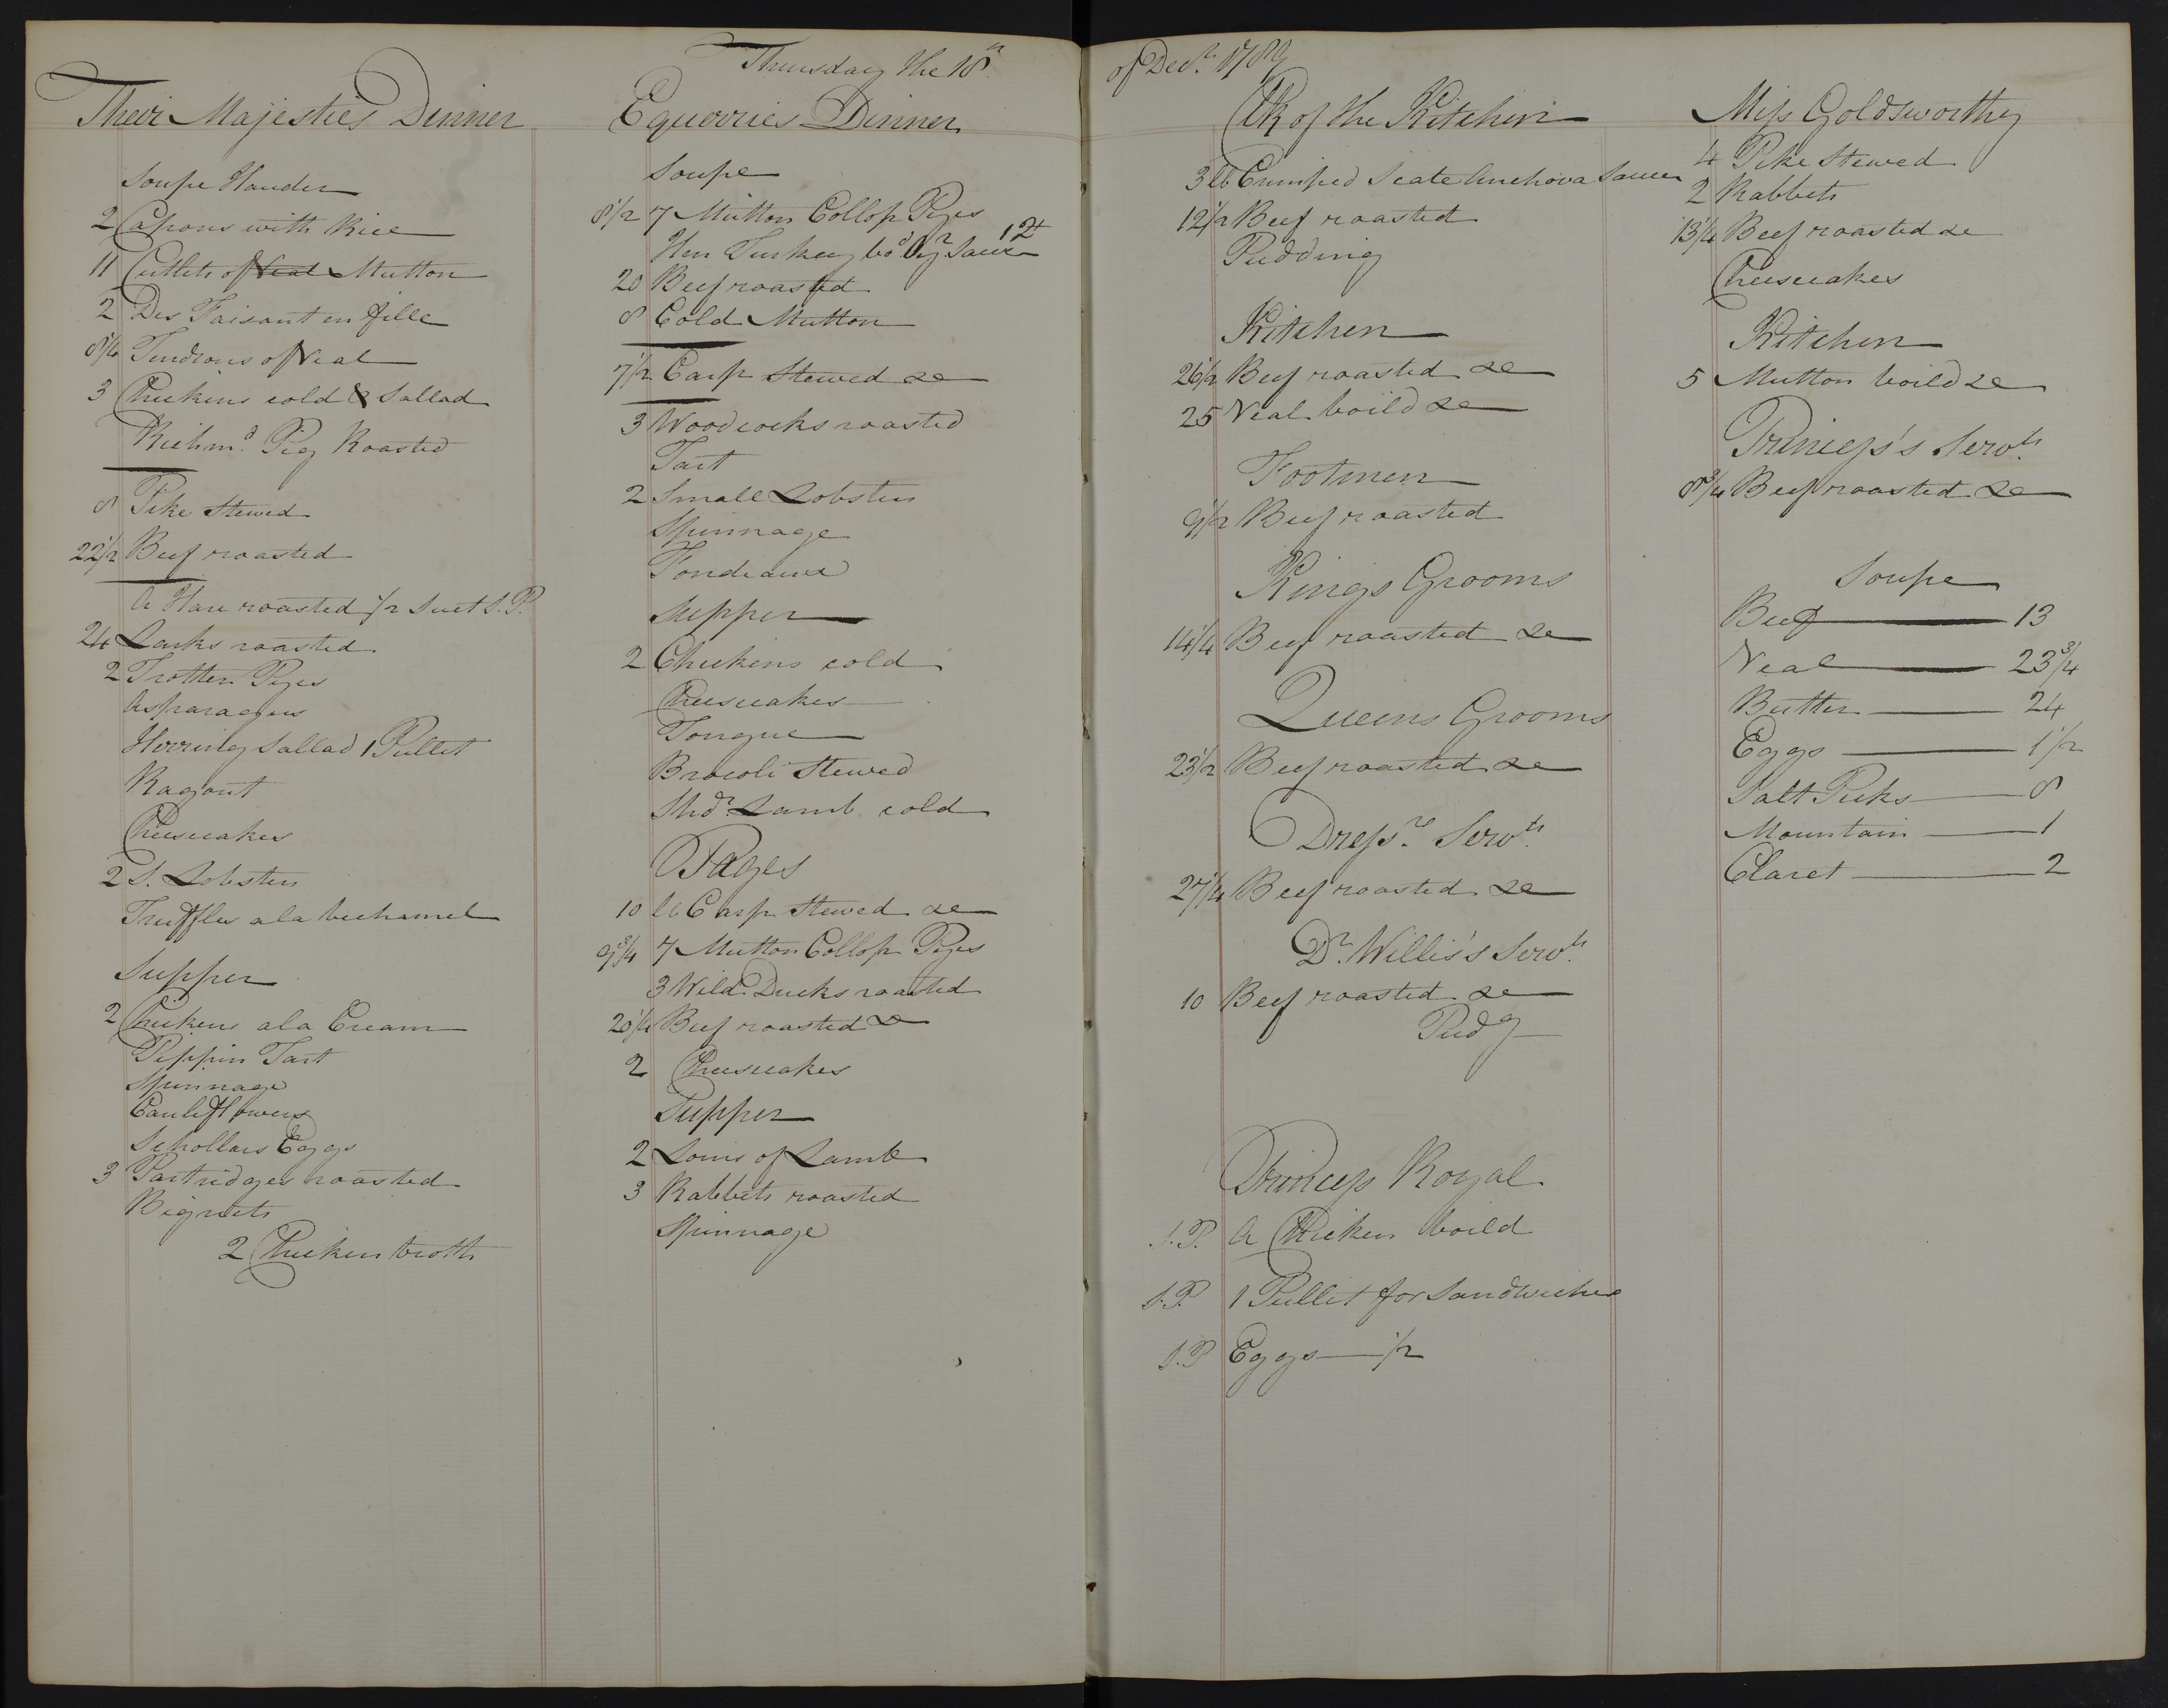 Thursday the 18th of Decr. 178
Their Majesties Dinner
Soupe
2 Capons with Rice
11 Cutlets of Veal Mutton
2 Des Faisant en fille
8 1/4 Tendrons of Veal
3 Chickens cold & Sallad
Richmd. Pig Roasted
8 Pike Stewed
22 1/2 Beef roasted
A Hare roasted 1/2 Suet S.P.
24 Larks roasted
2 Trotter Pyes
Asparagus
Herring Sallad 1 Pullet
Ragout
Cheesecakes
2 S. Lobsters
Truffles a la bechamel
Supper
2 Chickens a la Cream
Pippin Tart
Spinnage
Cauliflowers
Schollars Eggs
3 Partridges roasted
Bignets
2 Chicken broth
Equerries Dinner
Soupe
8 1/2 7 Mutton Collop Pyes
Hen Turkey bod. Oyr. Sauce 12
20 Beef roasted
8 Cold Mutton
7 1/2 Carp Stewed &c
3 Woodcocks roasted
Tart
2 Small Lobsters
Spinnage
Fondeaux
Supper
2 Chickens cold
Cheesecakes
Tongue
Brocoli Stewed
Shdr. Lamb cold
Pages
10 lb Carp Stewed &c
9 3/4 7 Mutton Collop Pyes
3 Wild Ducks roasted
20 1/4 Beef roasted &c
2 Cheesecakes
Supper
2 Loins of Lamb
3 Rabbets roasted
Spinnage
Clk of the Kitchin
3 lb Crimped Scate Anchova Sauce
12 1/2 Beef roasted
Pudding
Kitchen
26 1/2 Beef roasted &c
25 Veal boild &c
Footmen
9 1/2 Beef roasted
Kings Grooms
14 1/4 Beef roasted &c
Queens Grooms
23 1/2 Beef roasted &c
Dressrs. Servts.
27 1/4 Beef roasted &c
Dr. Willis's Servts.
10 Beef roasted &c
Pudg
Princess Royal
S.P. A Chicken boild
S.P. 1 Pullet for Sandwiches
S.P. Eggs 1/2
Miss Goldsworthy
4 Pike Stewed
2 Rabbets
13 1/4 Beef roasted &c
Cheesecakes
Kitchen
5 Mutton boild &c
Princess's Servts.
8 3/4 Beef roasted &c
Soupe
Beef 13
Veal 23 3/4
Butter 24
Eggs 1 1/2
Salt Pecks 8
Mountain 1
Claret 2